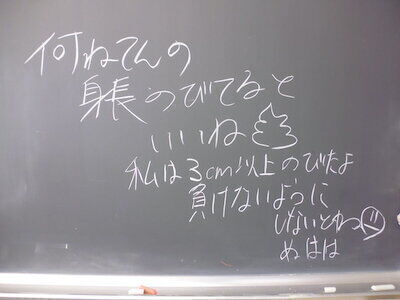 何ねてんの
身長のびてると
いいね
私は3cm以上のびたよ
負けないように
しないとねっ
ぬはは